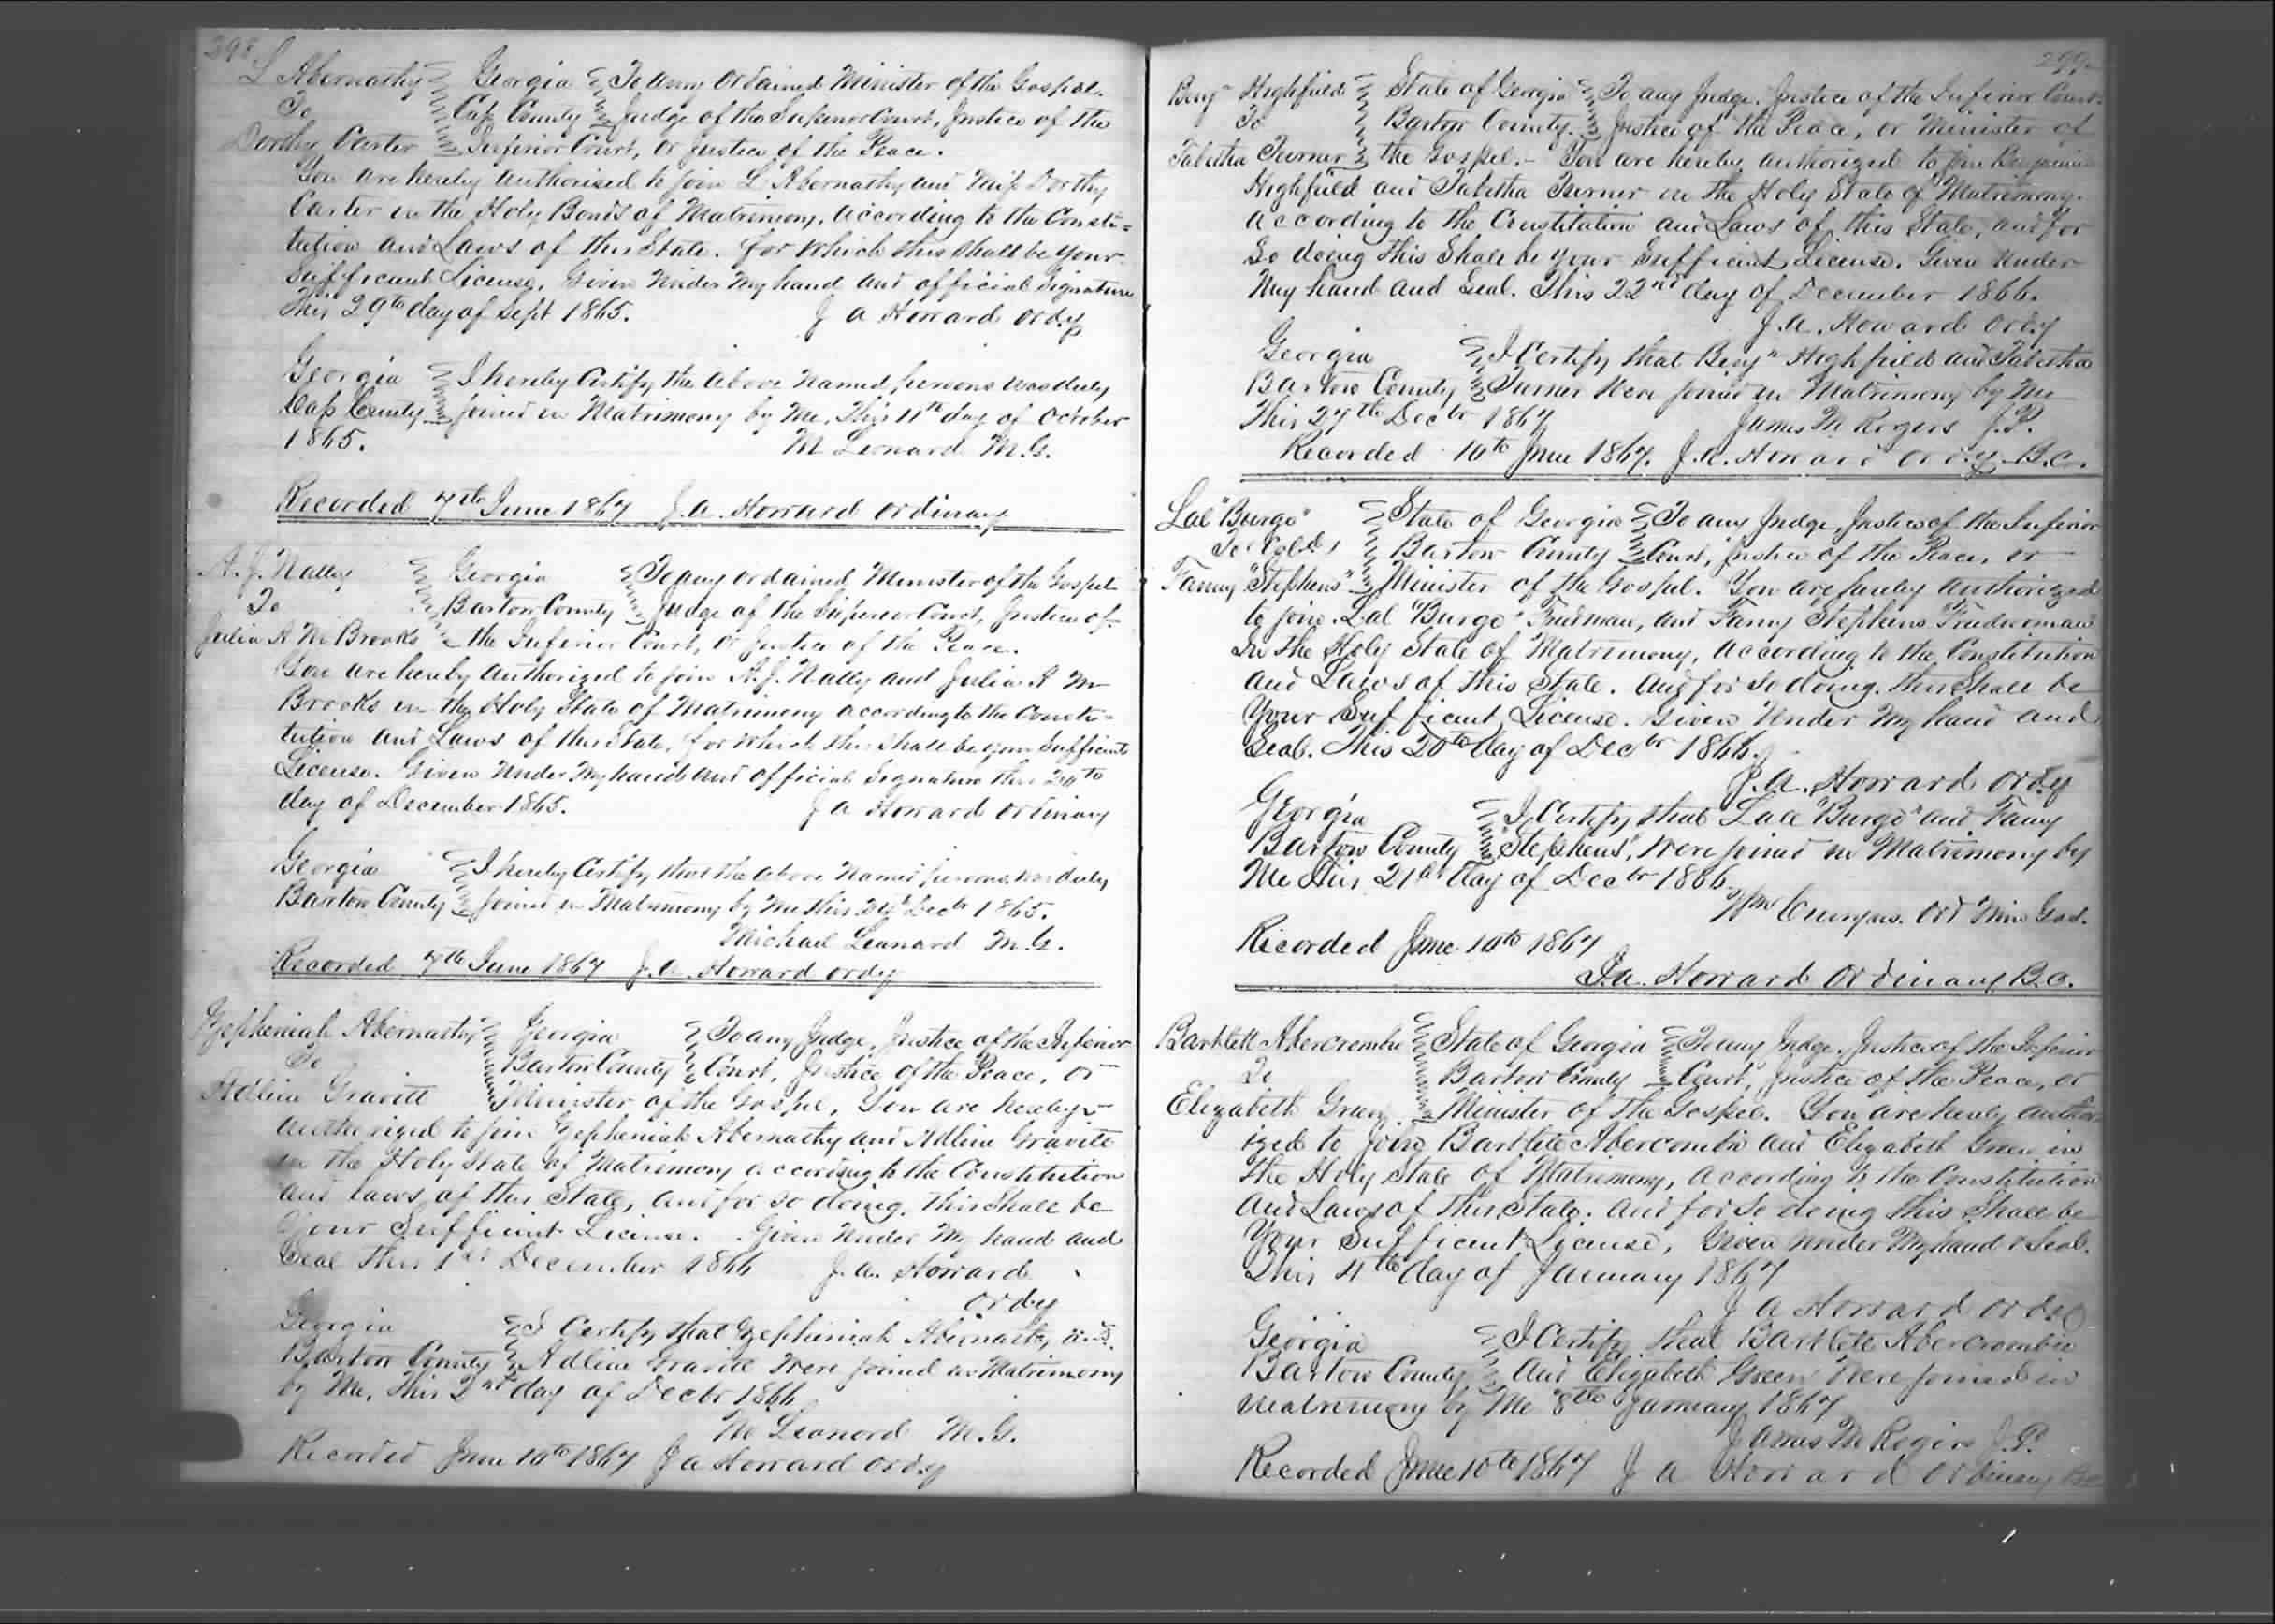 298
L Abernathy Georgia To any Ordained Minister of the Gospel.
To Cass County Judge of the Superior Court, Justice of the
Dorthy Carter Inferior Court, or Justice of the Peace.
You are hereby authorised to join L Abernathy and Miss Dorthy
Carter in the Holy Bonds of Matrimony, according to the Consti=
tution and Laws of this State. For which this shall be your
sufficient License, Given under my hand and official Signature
This 29th day of Sept 1865. J A Howard Ordy
Georgia I hereby Certify the above named persons was duly
Cass County joined in Matrimony by me, This 11th day of October
1865. M Leonard M.G.
Recorded 7th June 1867 J.A. Howard Ordinary
A. J. Nally Georgia To any ordained Minister of the Gospel
To Bartow County Judge of the Superior Court, Justice of
Julia A M Brooks the Inferior Court, or Justice of the Peace.
You are hereby authorized to join A.J. Nally and Julia A M
Brooks in the Holy State of Matrimony according to the Consti=
tution and Laws of this State, for which this shall be your Sufficient
License. Given under my hand and official Signature this 24th
day of December 1865. J A Howard Ordinary
Georgia I hereby Certify that the above named persons was duly
Bartow County joined in Matrimony by me this 24th Decr 1865.
Michael Leanard M.G.
Recorded 7th June 1867 J.A. Howard Ordy
Zepheniah Abernathy Georgia To any Judge, Justice of the Inferior
To Bartow County Court, Justice of the Peace, or
Adline Gravitt Minister of the Gospel, You are hereby
authorized to join Zepheniah Abernathy and Adline Gravitt
in the Holy State of Matrimony according to the Constitution
and laws of this State, and for so doing, this shall be
Your Sufficient License. Given under my hand and
Seal this 1st December 1866 J.A. Howard
Ordy
Georgia I Certify that Zepheniah Abernathy and
Bartow County Adline Gravitt were joined in Matrimony
by me, this 2nd day of Decbr 1866
M Leanord M.G.
Recorded June 10th 1867 J A Howard Ordy
299
Benj Highfield State of Georgia To any Judge, Justice of the Inferior Court
To Bartow County. Justice of the Peace, or Minister of
Tabitha Turner the Gospel. - You are hereby authorized to join Benjamin
Highfield and Tabitha Turner in the Holy State of Matrimony.
according to the Constitution and Laws of this State, and for
So doing this shall be your Sufficient License. Given under
my hand and Seal. This 22nd day of December 1866.
J.A. Howard Ordy
Georgia I Certify that Benjn Highfield and Tabitha
Bartow County Turner were joined in Matrimony by me
This 27th Decbr 1867
James M Rogers J.P.
Recorded 10th June 1867. J.A. Howard Ordy B.C.
Lal "Burge" State of Georgia To any Judge, Justice of the Inferior
To Cold, Bartow County Court, Justice of the Peace, or
Fanny "Stephens" Minister of the Gospel. You are hereby authorized
to join Lal "Burge" Freedman, and Fanny Stephens "Freedwoman"
In the Holy State of Matrimony, according to the Constitution
and Laws of this State. And for so doing, this shall be
Your Sufficient License. Given under my hand and
Seal. This 20th day of Decbr 1866.
J.A. Howard Ordy
Georgia I Certify that Lall "Burge" and Fanny
Bartow County "Stephens", were joined in Matrimony by
me this 21st day of Decbr 1866
Wm Ord Min Gos.
Recorded June 10th 1867
J.A. Howard Ordinary B.C.
Bartlett Abercrombie State of Georgia To any Judge, Justice of the Inferior
To Bartow County Court, Justice of the Peace, or
Elizabeth Green Minister of the Gospel. You are hereby author
ized to join Bartlett Abercombie and Elizabeth Green in
the Holy State of Matrimony, according to the Constitution
and Laws of this State. And for So doing this shall be
Your Sufficient License, Given under my hand & Seal.
This 4th day of January 1867
J A Howard Ordy
Georgia I Certify that Bartlett Abercrombie
Bartow County and Elizabeth Green were joined in
Matrimony by me 8th January 1867
James M Rogers J.P.
Recorded June 10th 1867 J A Howard Ordinary BC